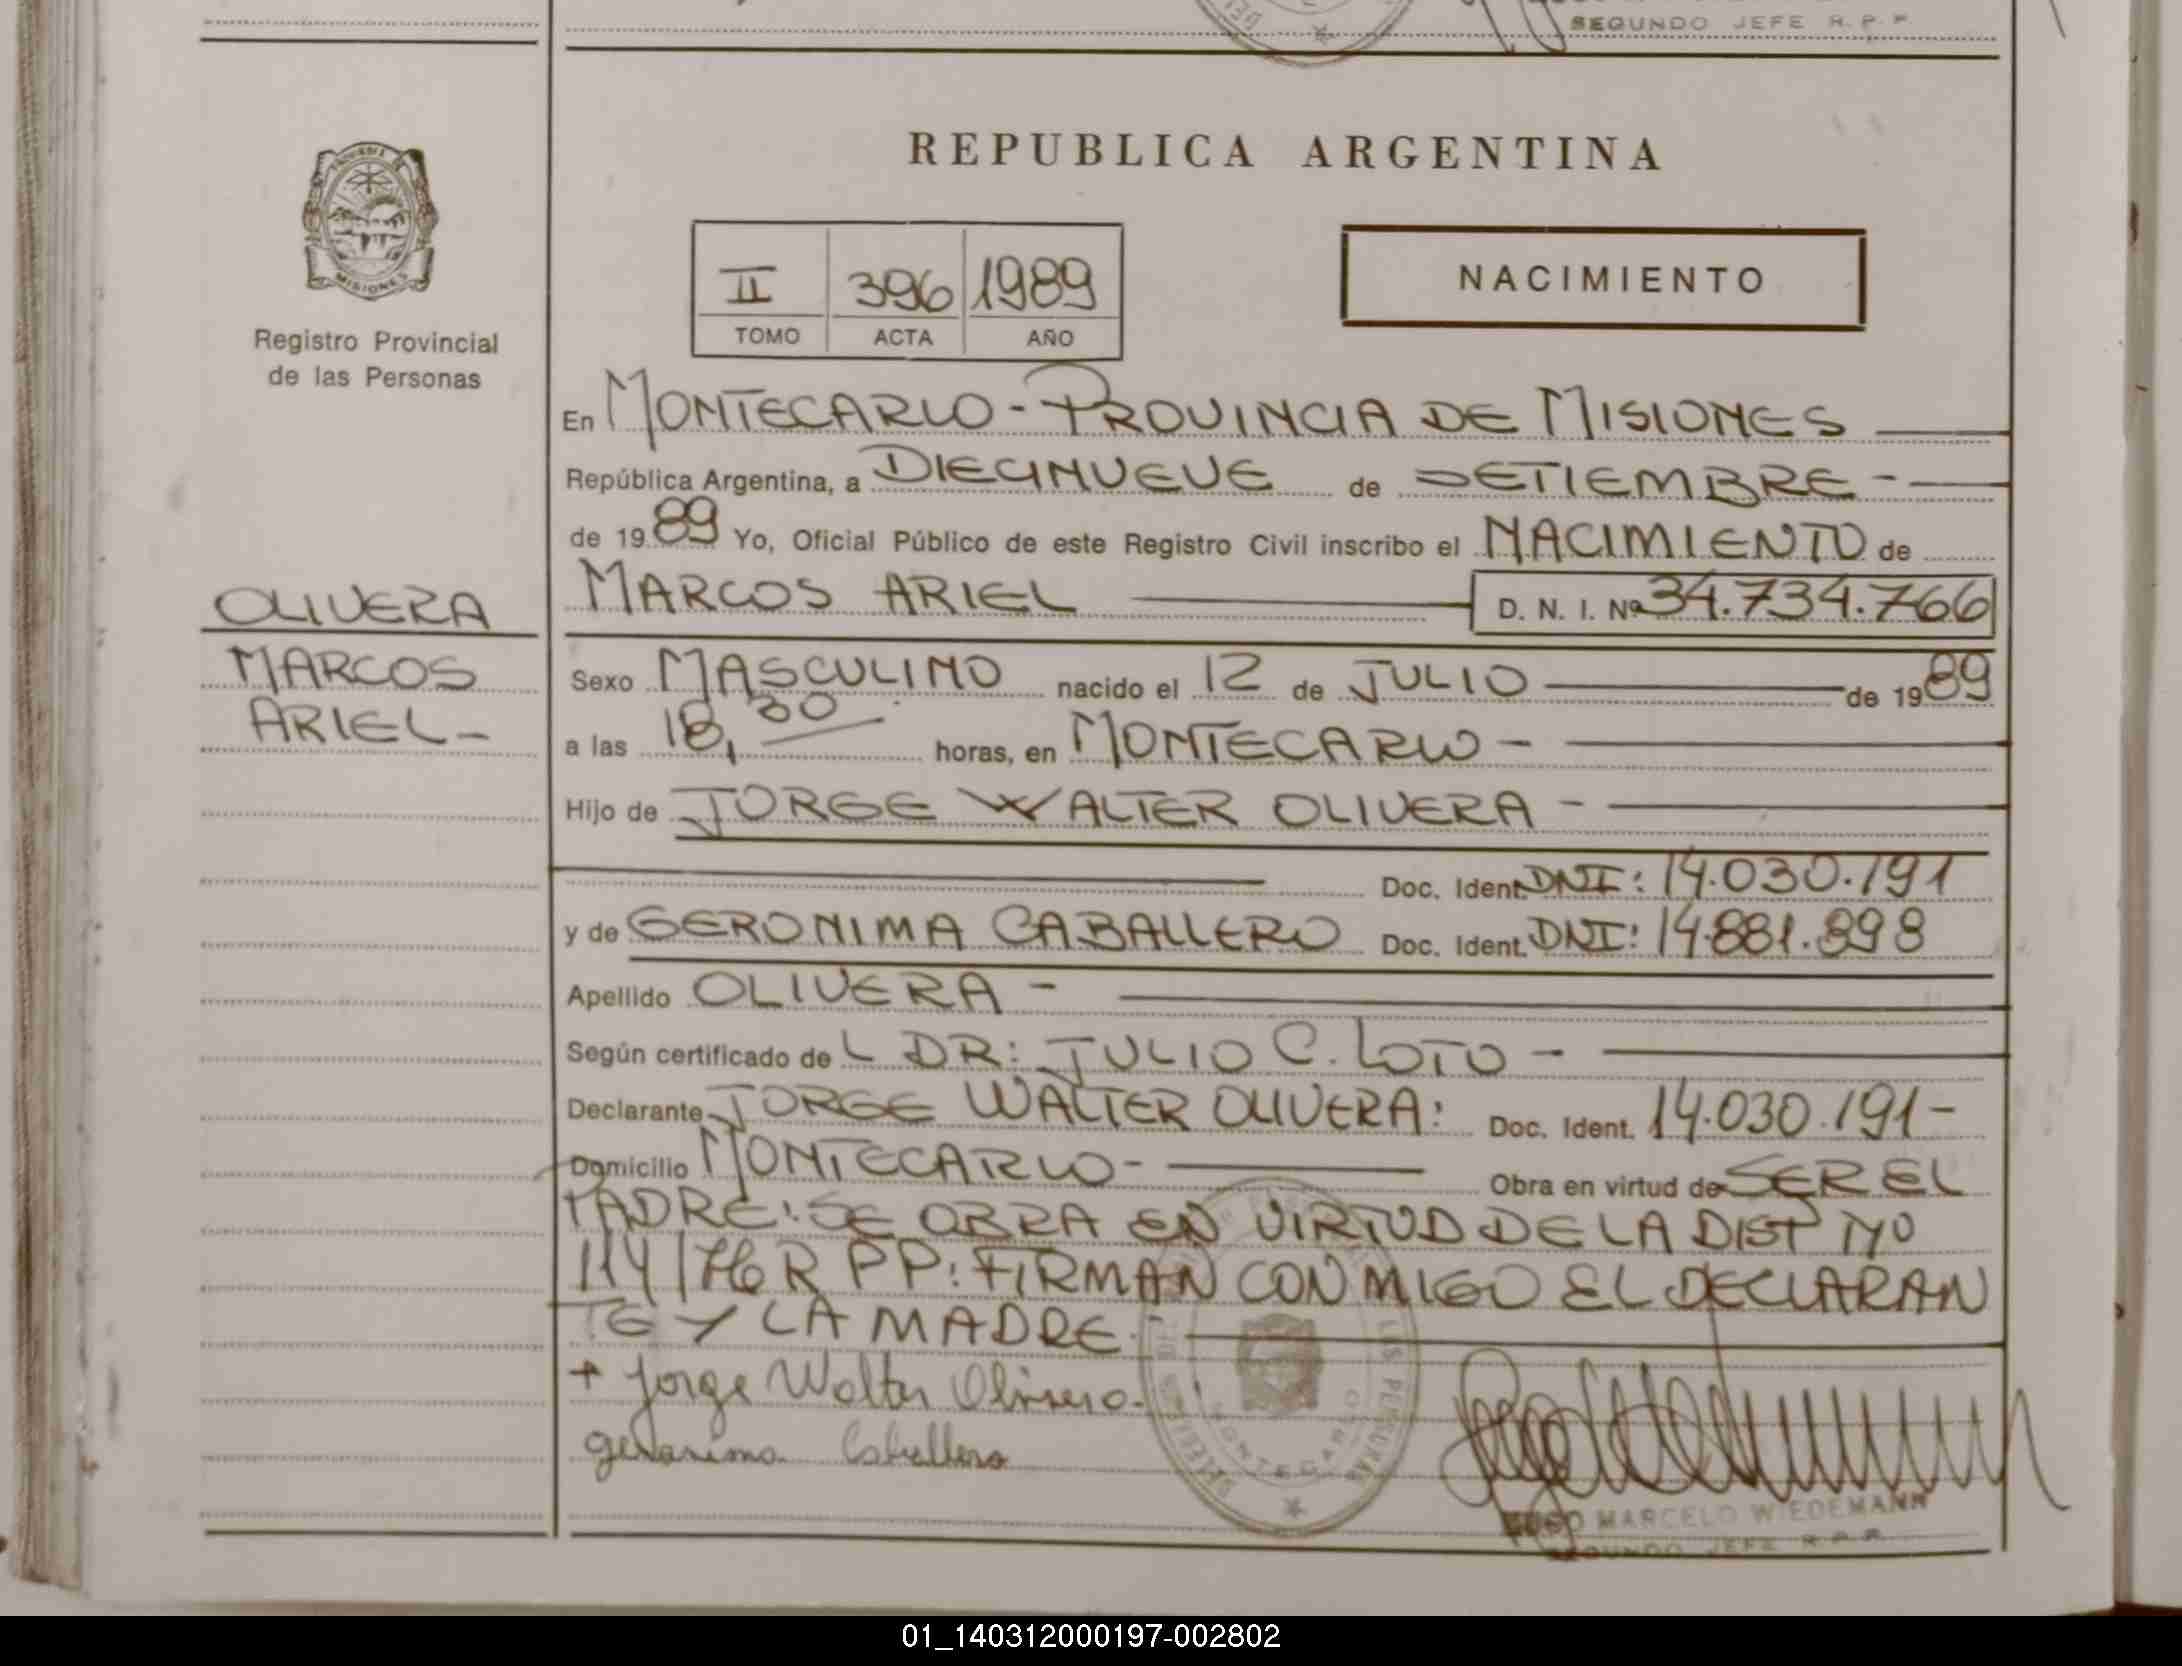 SEGUNDO JEFE R.P.P.
REPUBLICA ARGENTINA
MISIONES
Registro Provincial
de las Personas
II 396 1989
TOMO ACTA AÑO
NACIMIENTO
En MONTECARLO - PROVINCIA DE MISIONES
República Argentina, a DIECINUEVE de SETIEMBRE -
de 1989 Yo, Oficial Público de este Registro Civil inscribo el NACIMIENTO de
MARCOS ARIEL D. N. I. Nº 34.734.766
OLIVERA
MARCOS
ARIEL -
Sexo MASCULINO nacido el 12 de JULIO de 1989
a las 18,30 horas, en MONTECARLO -
Hijo de JORGE WALTER OLIVERA -
Doc. Ident. DNI: 14.030.191
y de GERONIMA CABALLERO Doc. Ident. DNI: 14.881.898
Apellido OLIVERA -
Según certificado de L DR: JULIO C. LOTO -
Declarante JORGE WALTER OLIVERA: Doc. Ident. 14.030.191-
Domicilio MONTECARLO - Obra en virtud de SER EL
PADRE: SE OBRA EN VIRTUD DE LA DISP Nº
114/76 R PP: FIRMAN CON MIGO EL DECLARAN
TE Y LA MADRE.-
+ Jorge Walter Olivera.
Geronima Caballero
MONTECARLO
HUGO MARCELO WIEDEMANN
SEGUNDO JEFE R.P.P.
01_140312000197-002802